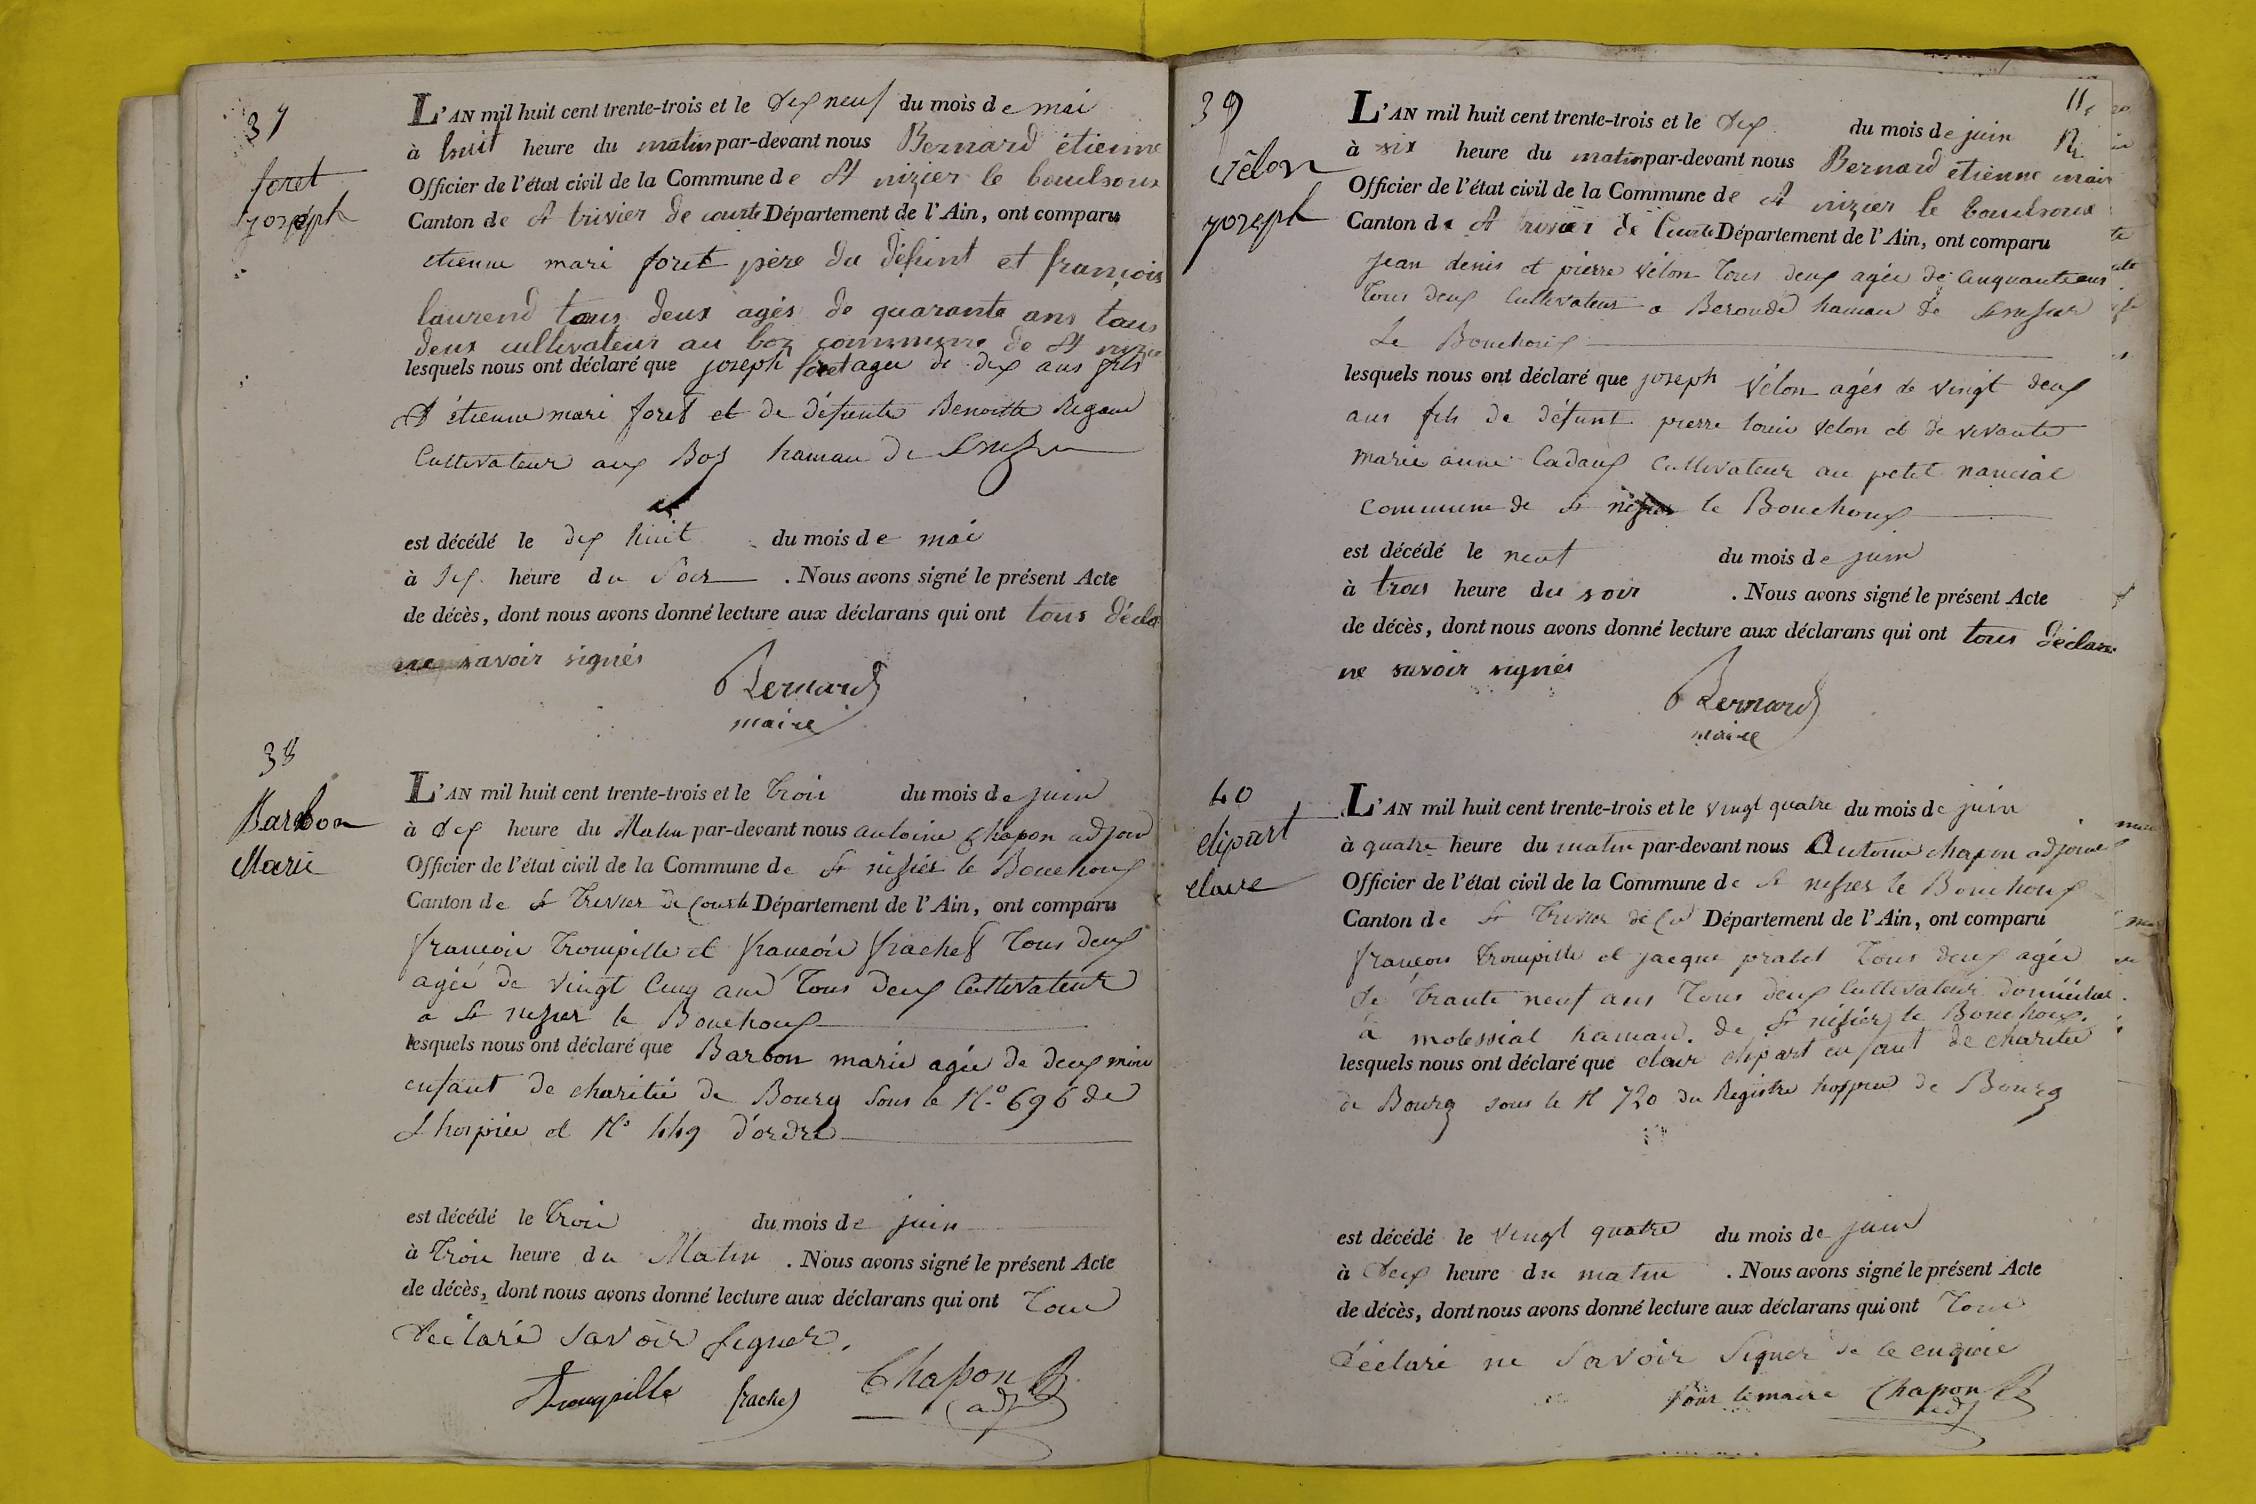 37
foret
joséph
L'AN mil huit cent trente-trois et le dix neuf du mois de mai
à huit heure du matin par-devant nous Bernard étienne
Officier de l'état civil de la Commune de St nizier le bouchoux
Canton de St trivier de courte Département de l'Ain, ont comparu
etienne mari foret père du défunt et françois
laurend tous deux agés de quarante ans tous
deux cultivateurs au boz commune de St nizie
lesquels nous ont déclaré que joseph foret agee de dix ans fils
d'étienne mari foret et de défunte Benoitte Rigaud
Cultivateur aux Boz hamau de
est décédé le dix huit du mois de mai
à dix heure du Soir . Nous avons signé le présent Acte
de décès, dont nous avons donné lecture aux déclarans qui ont tous décla
ne savoir signés
Bernard
maire
38
Barbon
Marie
L'AN mil huit cent trente-trois et le trois du mois de juin
à dix heure du Matin par-devant nous antoine Chapon adjoin
Officier de l'état civil de la Commune de St nisier le Bouchoux
Canton de St Trivier de Courte Département de l'Ain, ont comparu
françois trompille et françois frachet tous deux
agée de vingt cinq ans tous deux Cultivateur
a St nisier le Bouchoux
lesquels nous ont déclaré que Barbon marie agée de deux mois
enfant de charitée de Bourg sous le N° 696 de
L'hospice et N° 449 d'ordre
est décédé le trois du mois de juin
à trois heure du Matin . Nous avons signé le présent Acte
de décès, dont nous avons donné lecture aux déclarans qui ont tous
déclaré savoir signer.
Trompille frache Chapon
adj
39
vélon
joseph
11
L'AN mil huit cent trente-trois et le dix du mois de juin
à six heure du matin par-devant nous Bernard etienne mair
Officier de l'état civil de la Commune de St nizier le bouchoux
Canton de St trivier de Courte Département de l'Ain, ont comparu
jean denis et pierre vélon tous deux agée de cinquante ans
tous deux Cultivateur a Beroude hamau de
Le Bouchoux
lesquels nous ont déclaré que joseph vélon agés de vingt deux
ans fils de défunt pierre louis velon et de vivante
marie anne Cadoux Cultivateur au petit nancial
commune de St nisier le Bouchoux
est décédé le neuf du mois de juin
à trois heure du soir . Nous avons signé le présent Acte
de décès, dont nous avons donné lecture aux déclarans qui ont tous déclare
ne savoir signés
Bernard
maire
40
elipart
claire
L'AN mil huit cent trente-trois et le vingt quatre du mois de juin
à quatre heure du matin par-devant nous Antoine chapon adjoint
Officier de l'état civil de la Commune de St nisier le Bouchoux
Canton de St Trivier de Cou Département de l'Ain, ont comparu
françois trompille et jacque pratet tous deux agée
de trante neuf ans tous deux Cultivateur domicilié
a molessial hamau de St nisier le Bouchoux.
lesquels nous ont déclaré que clair elipart enfant de charitée
de Bourg sous le N 720 du Registre hospice de Bourg
est décédé le vingt quatre du mois de juin
à deux heure du matin . Nous avons signé le présent Acte
de décès, dont nous avons donné lecture aux déclarans qui ont tous
déclaré ne savoir signer de ce enquie
pour le maire Chapon
adj